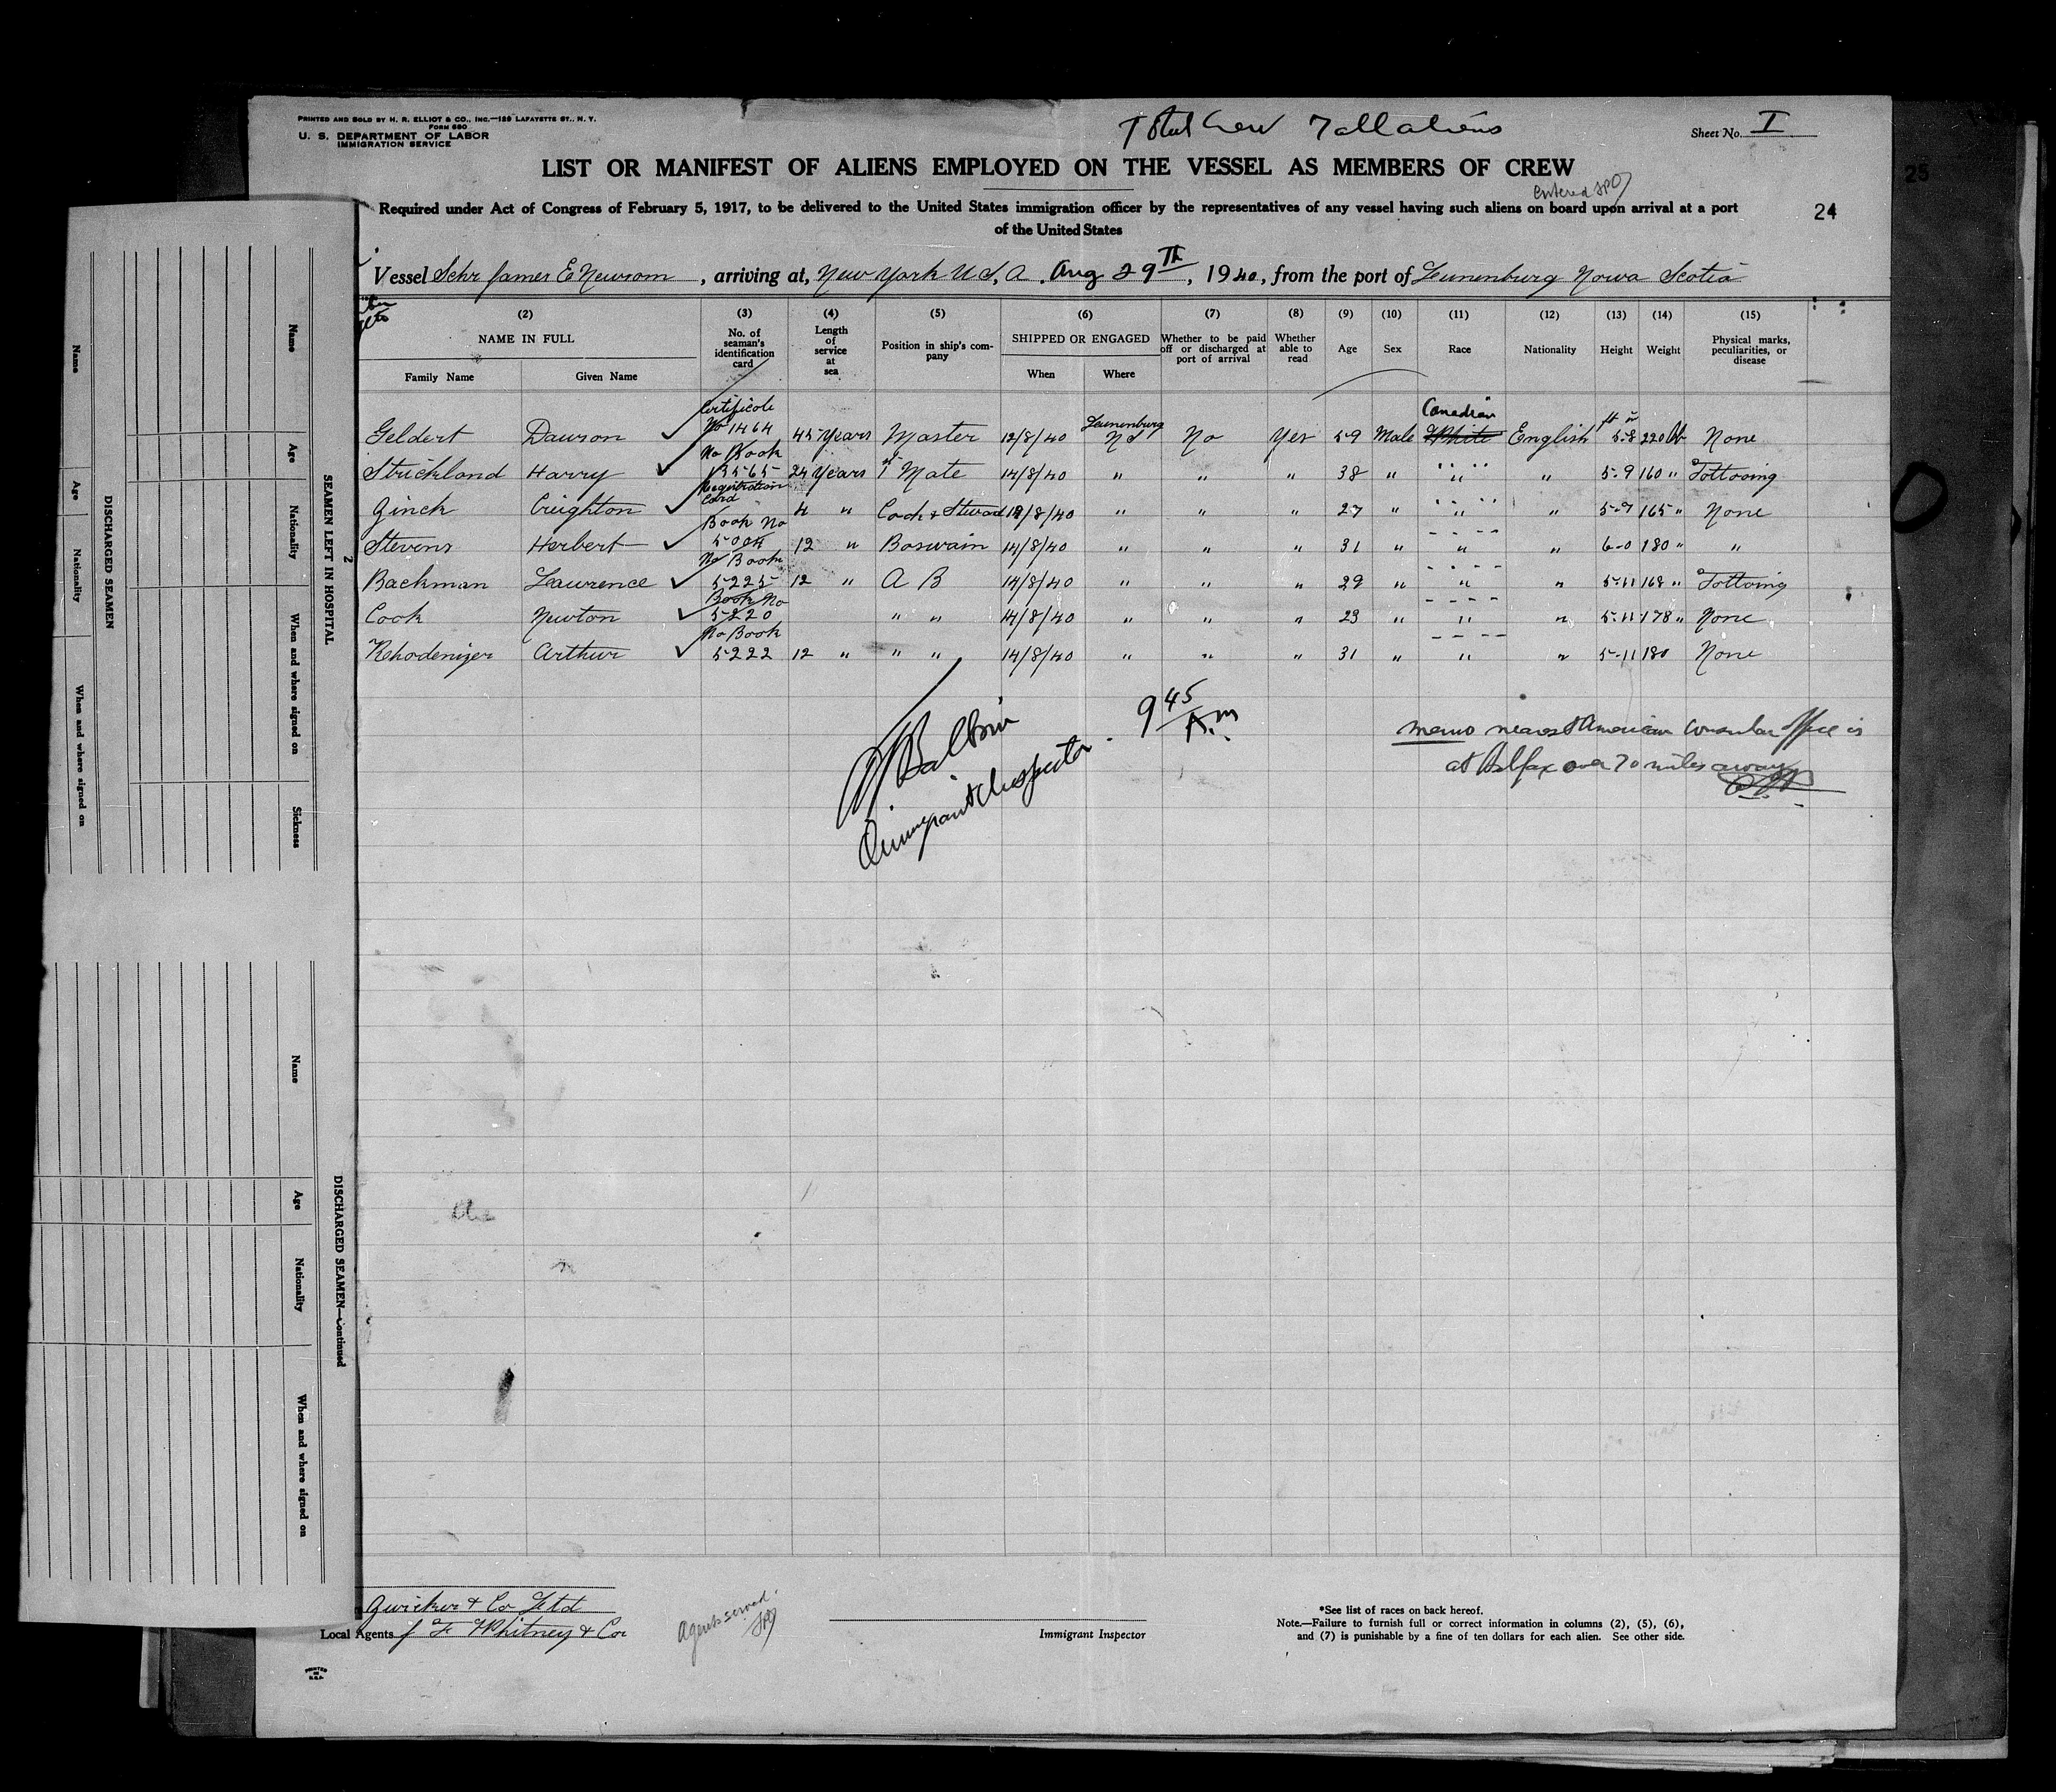 PRINTED AND SOLD BY H. R. ELLIOT & CO., INC.—129 LAFAYETTE ST., N. Y.
FORM 680
U. S. DEPARTMENT OF LABOR
IMMIGRATION SERVICE
Total Crew 7 all aliens
Sheet No. I
LIST OR MANIFEST OF ALIENS EMPLOYED ON THE VESSEL AS MEMBERS OF CREW
entered
Required under Act of Congress of February 5, 1917, to be delivered to the United States immigration officer by the representatives of any vessel having such aliens on board upon arrival at a port
of the United States
24
25
Vessel Schr James E Newsom, arriving at, New York U.S.A. Aug 29th, 1940, from the port of Lunenburg Nova Scotia
(2) (3) (4) (5) (6) (7) (8) (9) (10) (11) (12) (13) (14) (15)
NAME IN FULL
Family Name Given Name
No. of seaman's identification card
Length of service at sea
Position in ship's company
SHIPPED OR ENGAGED
When Where
Whether to be paid off or discharged at port of arrival
Whether able to read
Age Sex Race Nationality Height Weight
Physical marks, peculiarities, or disease
Geldert Dawson ✓ Certificate No 1464 45 Years Master 12/8/40 Lunenburg NS No Yes 59 Male Canadian White English ft in 5-8 220 lb None
Strickland Harry ✓ No Book 13565 24 Years 1st Mate 14/8/40 " " " 38 " " " 5-9 160 " Tottooing
Zinck Creighton ✓ Registration Card 4 " Cook & Steward 13/8/40 " " " 27 " " " 5-7 165 " None
Stevens Herbert ✓ Book No 5004 12 " Boswain 14/8/40 " " " 31 " " " 6-0 180 " "
Backman Lawrence ✓ No Book 5225 12 " A B 14/8/40 " " " 29 " " " 5-11 168 " Tottoing
Cook Newton ✓ Book No 5220 " " 14/8/40 " " " 23 " " " 5-11 178 " None
Rhodenizer Arthur ✓ No Book 5222 12 " " " 14/8/40 " " " 31 " " " 5-11 180 None
Balbin
Immigrant Inspector. 9 45 A.m
memo nearest American consular office is
at Halifax over 70 miles away
Zwicker & Co Ltd
Local Agents J F Whitney & Co
Agents served
Immigrant Inspector
*See list of races on back hereof.
Note.—Failure to furnish full or correct information in columns (2), (5), (6),
and (7) is punishable by a fine of ten dollars for each alien. See other side.
PRINTED IN U.S.A.
2
SEAMEN LEFT IN HOSPITAL
Name Age Nationality When and where signed on Sickness
DISCHARGED SEAMEN
Name Age Nationality When and where signed on
DISCHARGED SEAMEN—Continued
Name Age Nationality When and where signed on